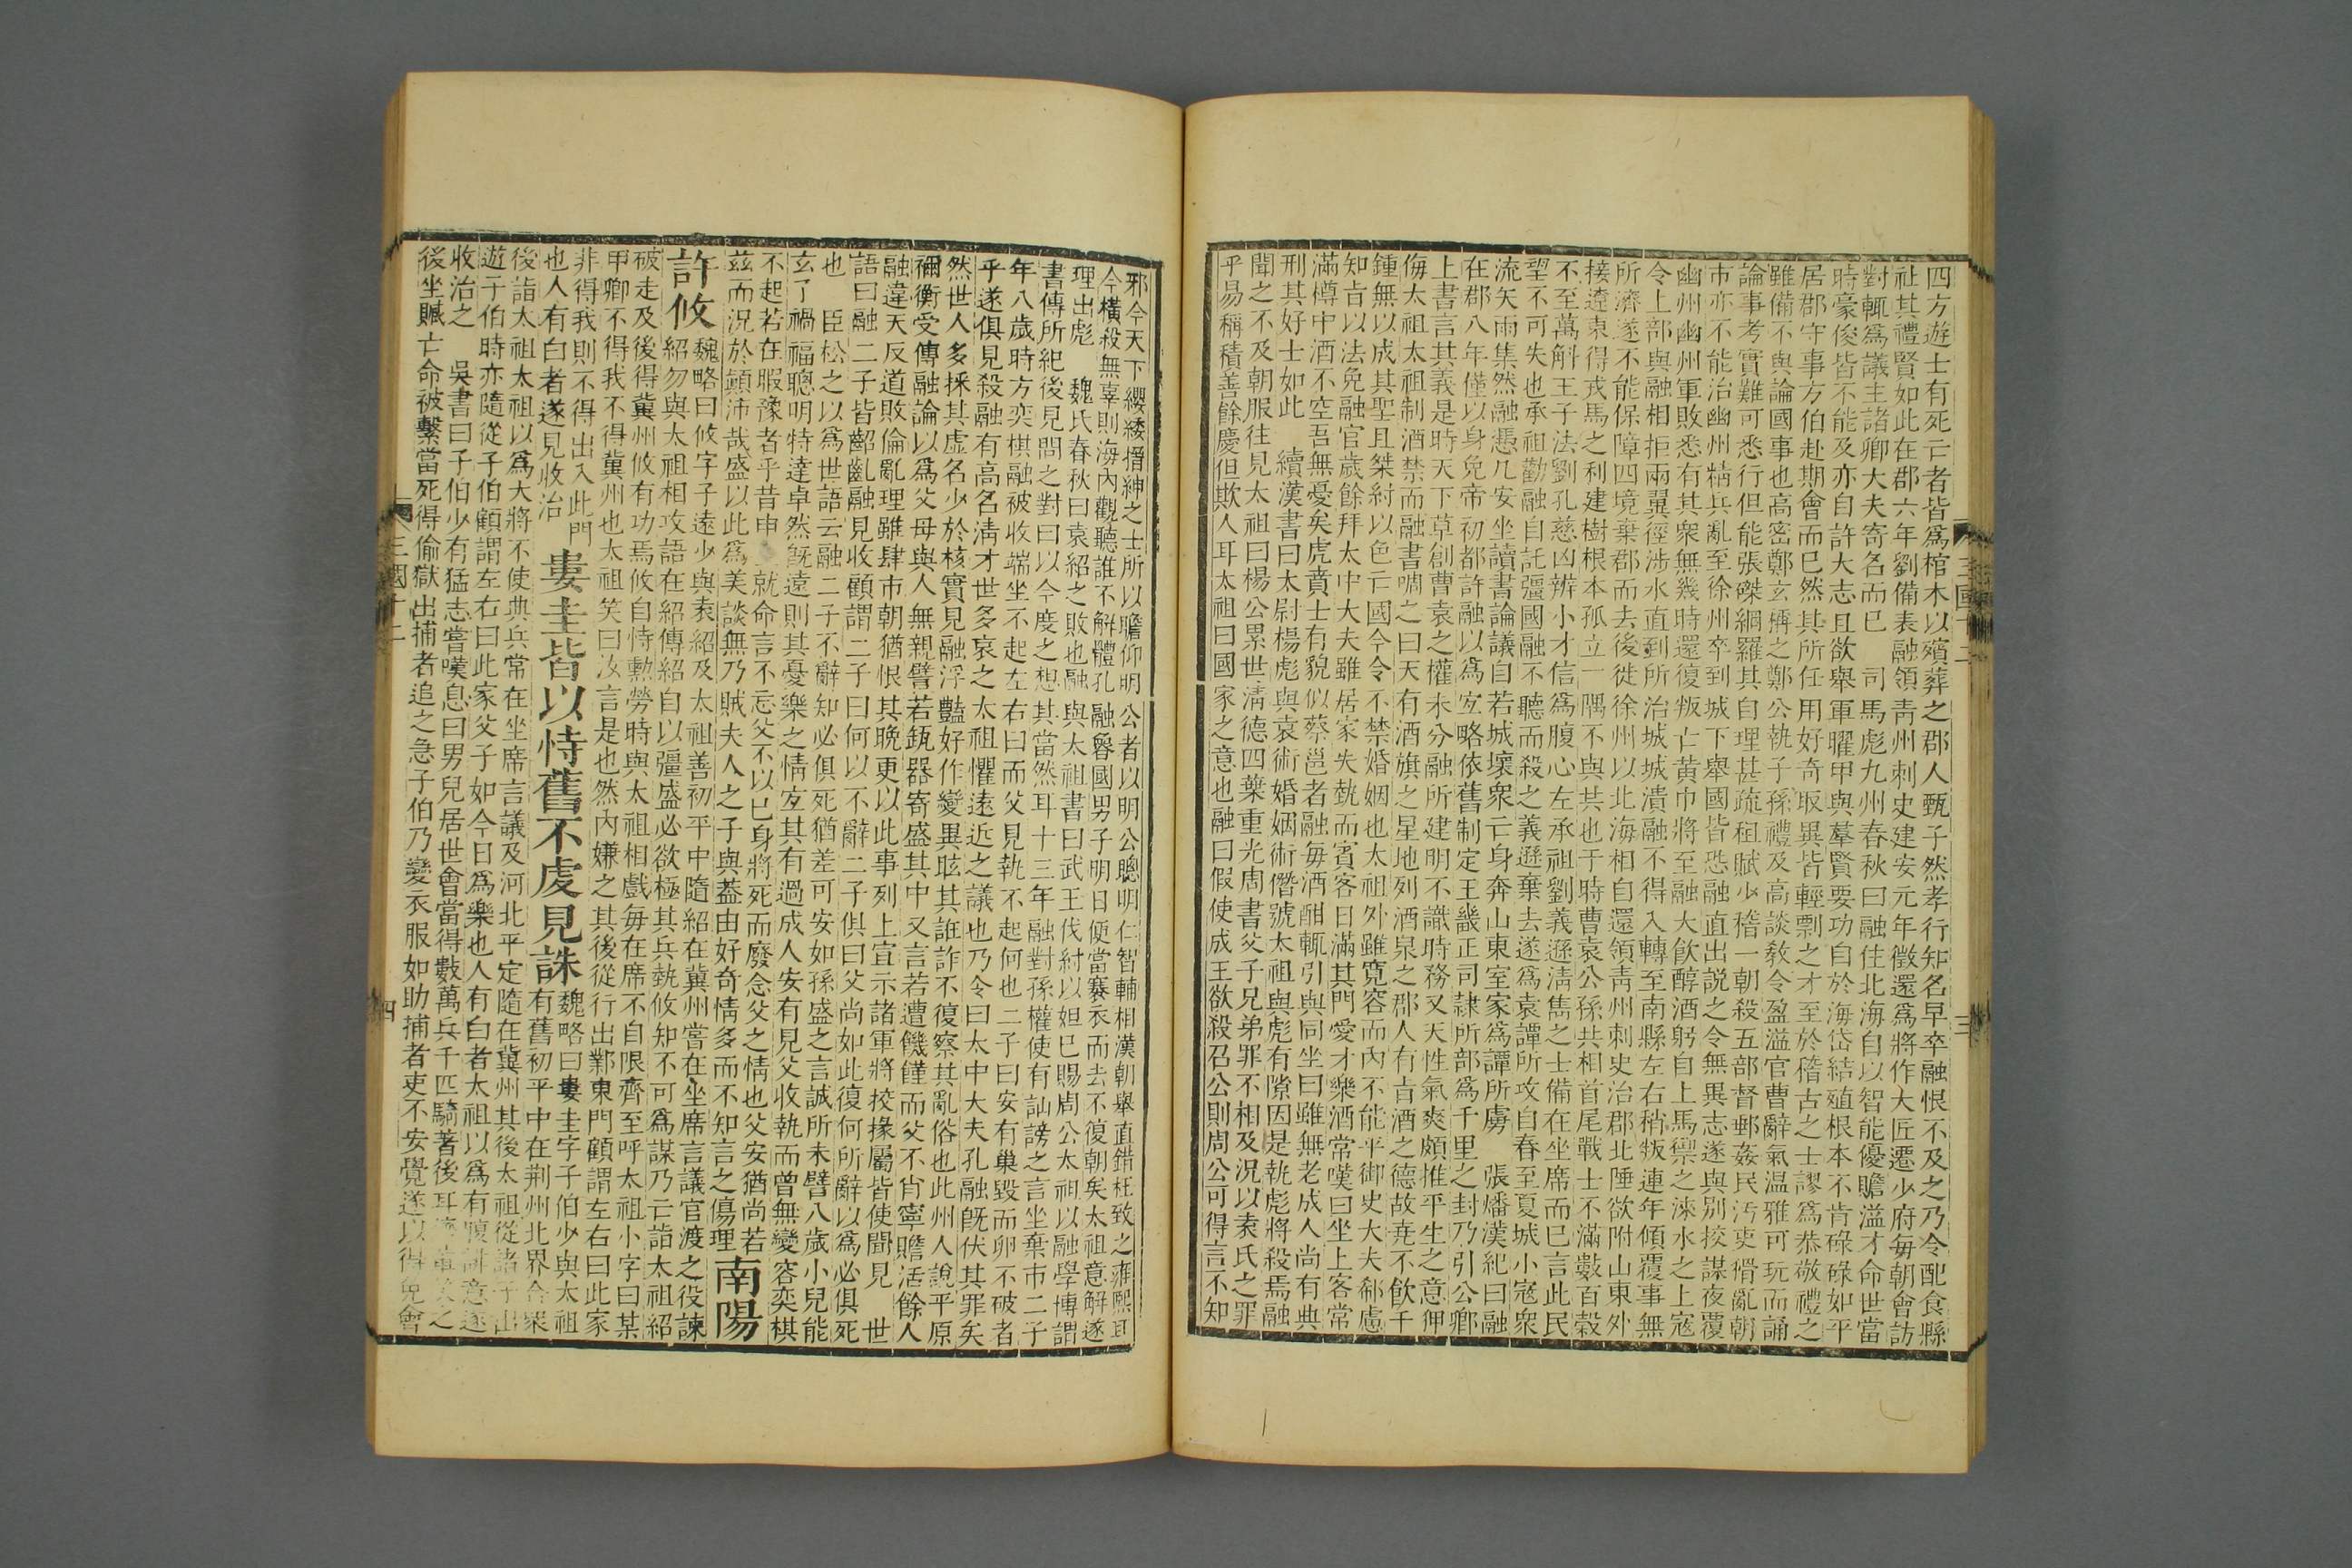 四方遊士有死亡者皆爲棺木以殯葬之郡人甄子然孝行知名早卒融恨不及之乃令配食縣
社其禮賢如此在郡六年劉備表融領青州刺史建安元年徵還爲將作大匠遷少府每朝會訪
對輒爲議主諸卿大夫寄名而已　司馬彪九州春秋曰融在北海自以智能優贍溢才命世當
時豪俊皆不能及亦自許大志且欲舉軍曜甲與羣賢要功自於海岱結殖根本不肯碌碌如平
居郡守事方伯赴期會而已然其所任用好奇取異皆輕剽之才至於稽古之士謬爲恭敬禮之
雖備不與論國事也高密鄭玄稱之鄭公執子孫禮及高談教令盈溢官曹辭氣温雅可玩而誦
論事考實難可悉行但能張磔網羅其自理甚疏租賦少稽一朝殺五部督郵姦民汚吏猾亂朝
市亦不能治幽州精兵亂至徐州卒到城下舉國皆恐融直出說之令無異志遂與别挍謀夜覆
幽州幽州軍敗悉有其衆無幾時還復叛亡黄巾將至融大飲醇酒躬自上馬禦之淶水之上寇
令上部與融相拒兩翼徑涉水直到所治城城潰融不得入轉至南縣左右稍叛連年傾覆事無
所濟遂不能保障四境棄郡而去後徙徐州以北海相自還領青州刺史治郡北陲欲附山東外
接遼東得戎馬之利建樹根本孤立一隅不與共也于時曹袁公孫共相首尾戰士不滿數百穀
不至萬斛王子法劉孔慈凶辨小才信爲腹心左承祖劉義遜清雋之士備在坐席而已言此民
望不可失也承祖勸融自託彊國融不聽而殺之義遜棄去遂爲袁譚所攻自春至夏城小寇衆
流矢雨集然融憑几安坐讀書論議自若城壞衆亡身奔山東室家爲譚所虜　張璠漢紀曰融
在郡八年僅以身免帝初都許融以爲宜略依舊制定王畿正司隷所部爲千里之封乃引公卿
上書言其義是時天下草創曹袁之權未分融所建明不識時務又天性氣爽頗推平生之意狎
侮太祖太祖制酒禁而融書啁之曰天有酒旗之星地列酒泉之郡人有旨酒之德故堯不飲千
鍾無以成其聖且桀紂以色亡國今令不禁婚姻也太祖外雖寛容而内不能平御史大夫郗慮
知旨以法免融官歲餘拜太中大夫雖居家失埶而賓客日滿其門愛才樂酒常嘆曰坐上客常
滿樽中酒不空吾無憂矣虎賁士有貌似蔡邕者融每酒酣輒引與同坐曰雖無老成人尚有典
刑其好士如此　續漢書曰太尉楊彪與袁術婚姻術僭號太祖與彪有隙因是執彪將殺焉融
聞之不及朝服往見太祖曰楊公累世清德四葉重光周書父子兄弟罪不相及况以袁氏之罪
乎易稱積善餘慶但欺人耳太祖曰國家之意也融曰假使成王欲殺召公則周公可得言不知
三國十二
三
邪今天下纓緌搢紳之士所以瞻仰明公者以明公聰明仁智輔相漢朝舉直錯枉致之雍熙耳
今橫殺無辜則海内觀聽誰不解體孔融魯國男子明日便當褰衣而去不復朝矣太祖意解遂
理出彪　魏氏春秋曰袁紹之敗也融與太祖書曰武王伐紂以妲已賜周公太祖以融學博謂
書傳所紀後見問之對曰以今度之想其當然耳十三年融對孫權使有訕謗之言坐棄市二子
年八歲時方奕棋融被收端坐不起左右曰而父見執不起何也二子曰安有巢毀而卵不破者
乎遂俱見殺融有高名清才世多哀之太祖懼遠近之議也乃令曰太中大夫孔融旣伏其罪矣
然世人多採其虛名少於核實見融浮豔好作變異眩其誑詐不復察其亂俗也此州人說平原
禰衡受傳融論以爲父母與人無親譬若缻器寄盛其中又言若遭饑饉而父不肖寧贍活餘人
融違天反道敗倫亂理雖肆市朝猶恨其晚更以此事列上宣示諸軍將挍掾屬皆使聞見　世
語曰融二子皆齠齓融見收顧謂二子曰何以不辭二子俱曰父尚如此復何所辭以爲必俱死
也　臣松之以爲世語云融二子不辭知必俱死猶差可安如孫盛之言誠所未譬八歲小兒能
玄了禍福聰明特達卓然旣遠則其憂樂之情宜其有過成人安有見父收執而曾無變容奕棋
不起若在暇豫者乎昔申　就命言不忘父不以已身將死而廢念父之情也父安猶尚若
兹而況於顚沛哉盛以此爲美談無乃賊夫人之子與葢由好奇情多而不知言之傷理南陽
許攸魏略曰攸字子遠少與袁紹及太祖善初平中隨紹在冀州嘗在坐席言議官渡之役諫
紹勿與太祖相攻語在紹傳紹自以彊盛必欲極其兵埶攸知不可爲謀乃亡詣太祖紹
破走及後得冀州攸有功焉攸自恃勳勞時與太祖相戲每在席不自限齊至呼太祖小字曰某
甲卿不得我不得冀州也太祖笑曰汝言是也然内嫌之其後從行出鄴東門顧謂左右曰此家
非得我則不得出入此門
也人有白者遂見收治　婁圭皆以恃舊不虔見誅魏略曰婁圭字子伯少與太祖
有舊初平中在荆州北界合衆
後詣太祖太祖以爲大將不使典兵常在坐席言議及河北平定隨在冀州其後太祖從諸子出
遊子伯時亦隨從子伯顧謂左右曰此家父子如今日爲樂也人有白者太祖以爲有腹誹意遂
收治之　吳書曰子伯少有猛志嘗嘆息曰男兒居世會當得數萬兵千匹騎著後耳
後坐贓亡命被繫當死得偷獄出捕者追之急子伯乃變衣服如助捕者吏不安覺遂以得免會
三國十二
四